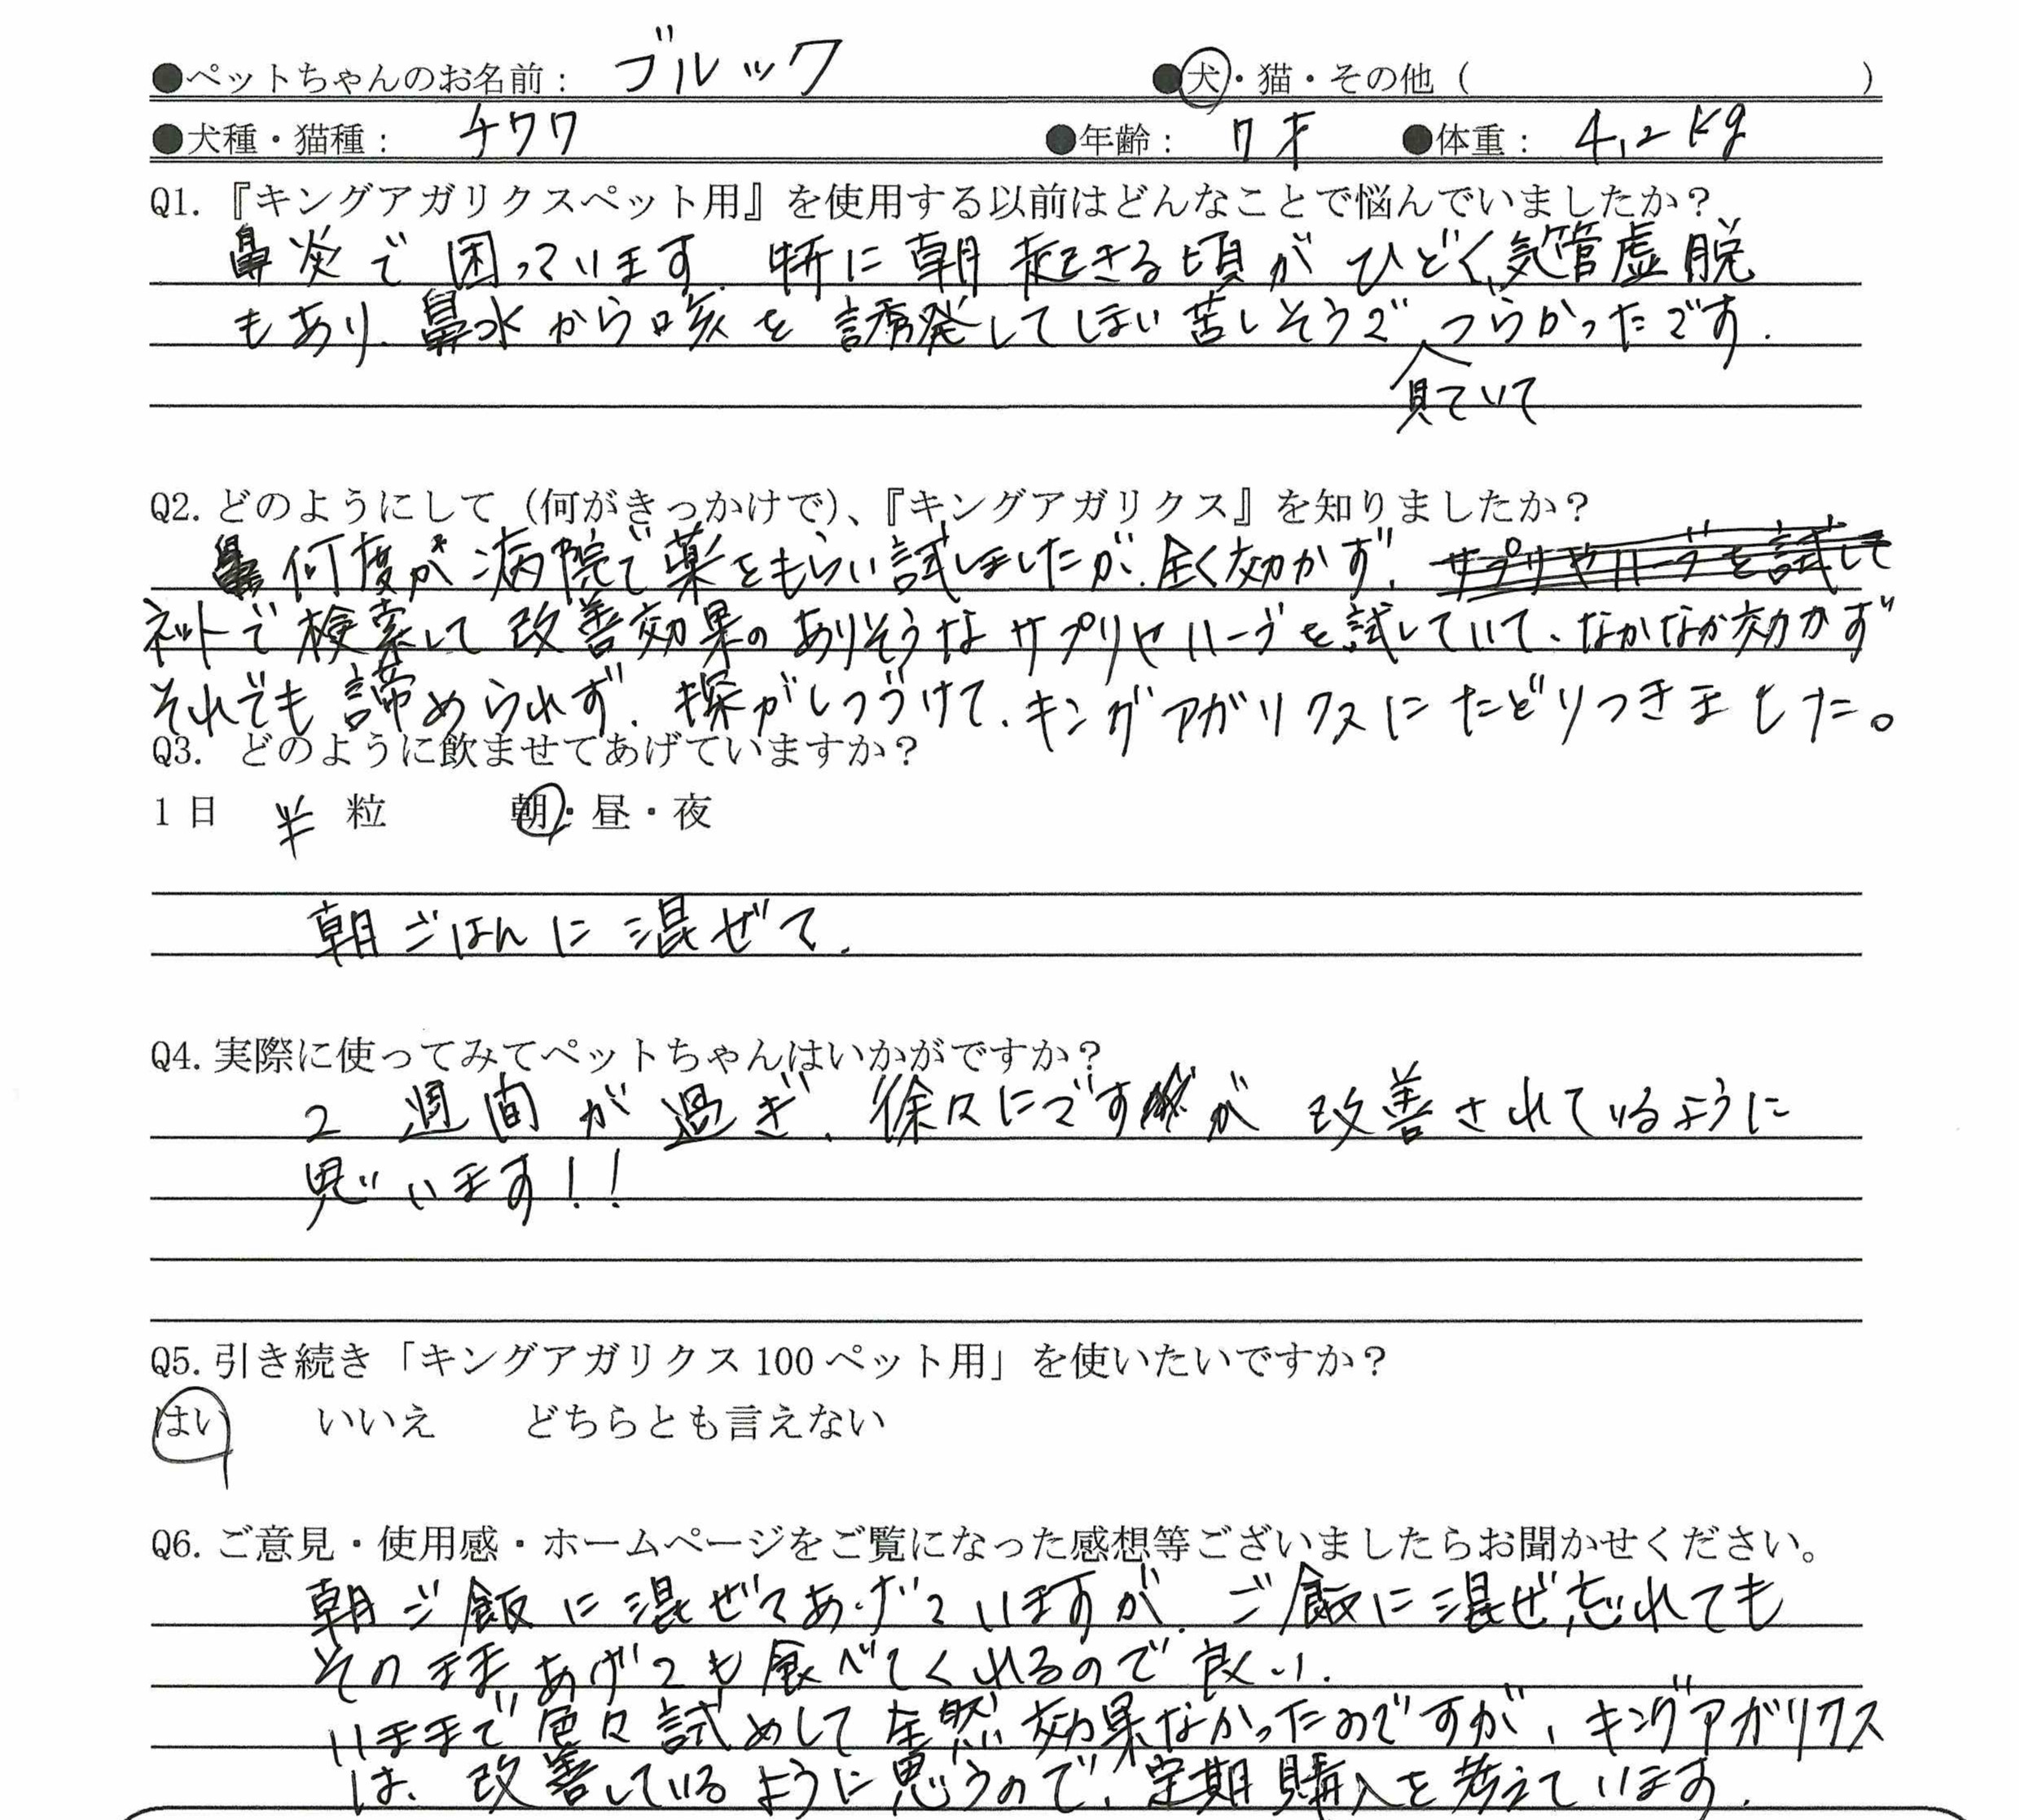 ●ペットちゃんのお名前： ブルック ●犬・猫・その他（ ）
●犬種・猫種： チワワ ●年齢： 7才 ●体重： 4.2kg
Q1.『キングアガリクスペット用』を使用する以前はどんなことで悩んでいましたか？
鼻炎で困っています。特に朝起きる頃がひどく、気管虚脱
もあり、鼻水から咳を誘発してしまい苦しそうでつらかったです.
見ていて
Q2.どのようにして（何がきっかけで）、『キングアガリクス』を知りましたか？
何度か病院で薬をもらい試しましたが、全く効かず、サプリやハーブを試して
ネットで検索して改善効果のありそうなサプリやハーブを試していて、なかなか効かず
それでも諦められず、探がしつづけて、キングアガリクスにたどりつきました。
Q3. どのように飲ませてあげていますか？
1日 半 粒 朝・昼・夜
朝ごはんに混ぜて.
Q4.実際に使ってみてペットちゃんはいかがですか？
2週間が過ぎ、徐々にですが改善されているように
思います!!
Q5.引き続き「キングアガリクス100ペット用」を使いたいですか？
はい いいえ どちらとも言えない
Q6.ご意見・使用感・ホームページをご覧になった感想等ございましたらお聞かせください。
朝ご飯に混ぜてあげていますが、ご飯に混ぜ忘れても
そのままあげても食べてくれるので良い.
いままで色々試めして全然効果なかったのですが、キングアガリクス
は、改善しているように思うので、定期購入を考えています.